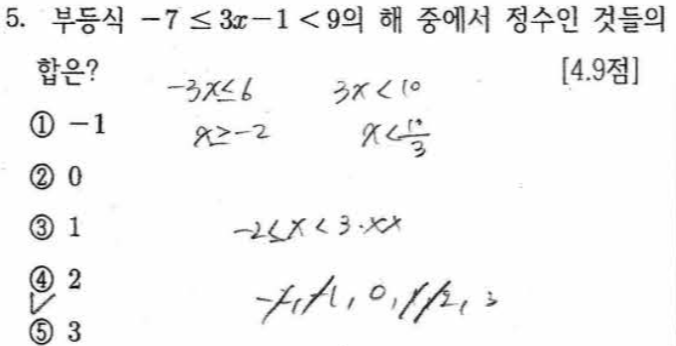 5. 부등식 -7 ≤ 3x-1 < 9의 해 중에서 정수인 것들의
합은? [4.9점]
-3x≤6 3x<10
① -1 x≥-2 x<10/3
② 0
③ 1 -2≤x<3.xx
④ 2
-2,-1,0,1,2,3
⑤ 3